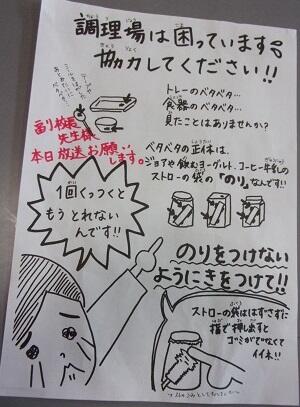 調理場は困っています
協力してください!!
トレーのベタベタ…
食器のベタベタ…
見たことはありませんか?
副校長
先生様
本日放送お願い
します。
ベタベタの正体は、
ジョアや飲むヨーグルト、コーヒー牛乳の
ストローの袋の「のり」なんです!!
1回くっつくと
もうとれない
んです!!
のりをつけない
ようにきをつけて!!
ストローの袋ははずさずに
指で押しますと
ゴミがでなくて
イイネ!!